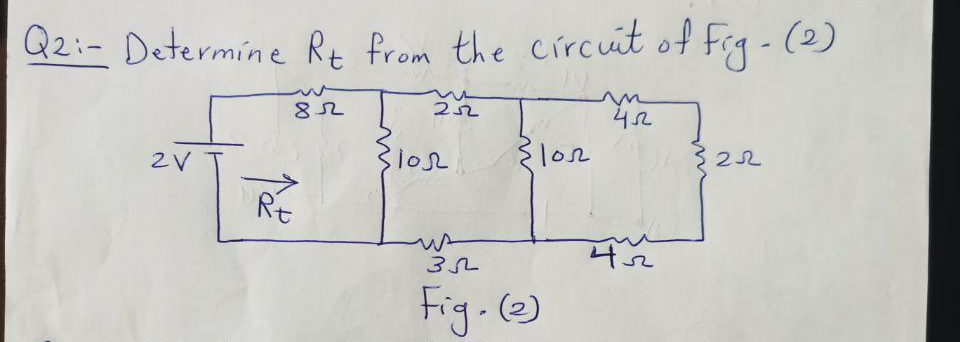 Q2:- Determine Rt from the circuit of Fig-(2)
8Ω 2Ω 4Ω
2V 10Ω 10Ω 2Ω
Rt
3Ω 4Ω
Fig.(2)